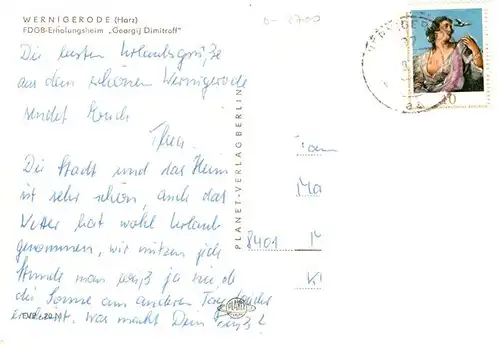 WERNIGERODE (Harz)
FDGB-Erholungsheim „Georgij Dimitroff"
Die besten Urlaubsgrüße
aus dem schönen Wernigerode
sendet Euch
Die Stadt und das Heim
ist sehr schön, auch das
Wetter hat wohl Urlaub
genommen, wir nützen jede
Stunde man weiß ja nie ob
die Sonne am anderen Tag wieder
scheint. Was macht Dein
PLANET-VERLAG BERLIN
8401